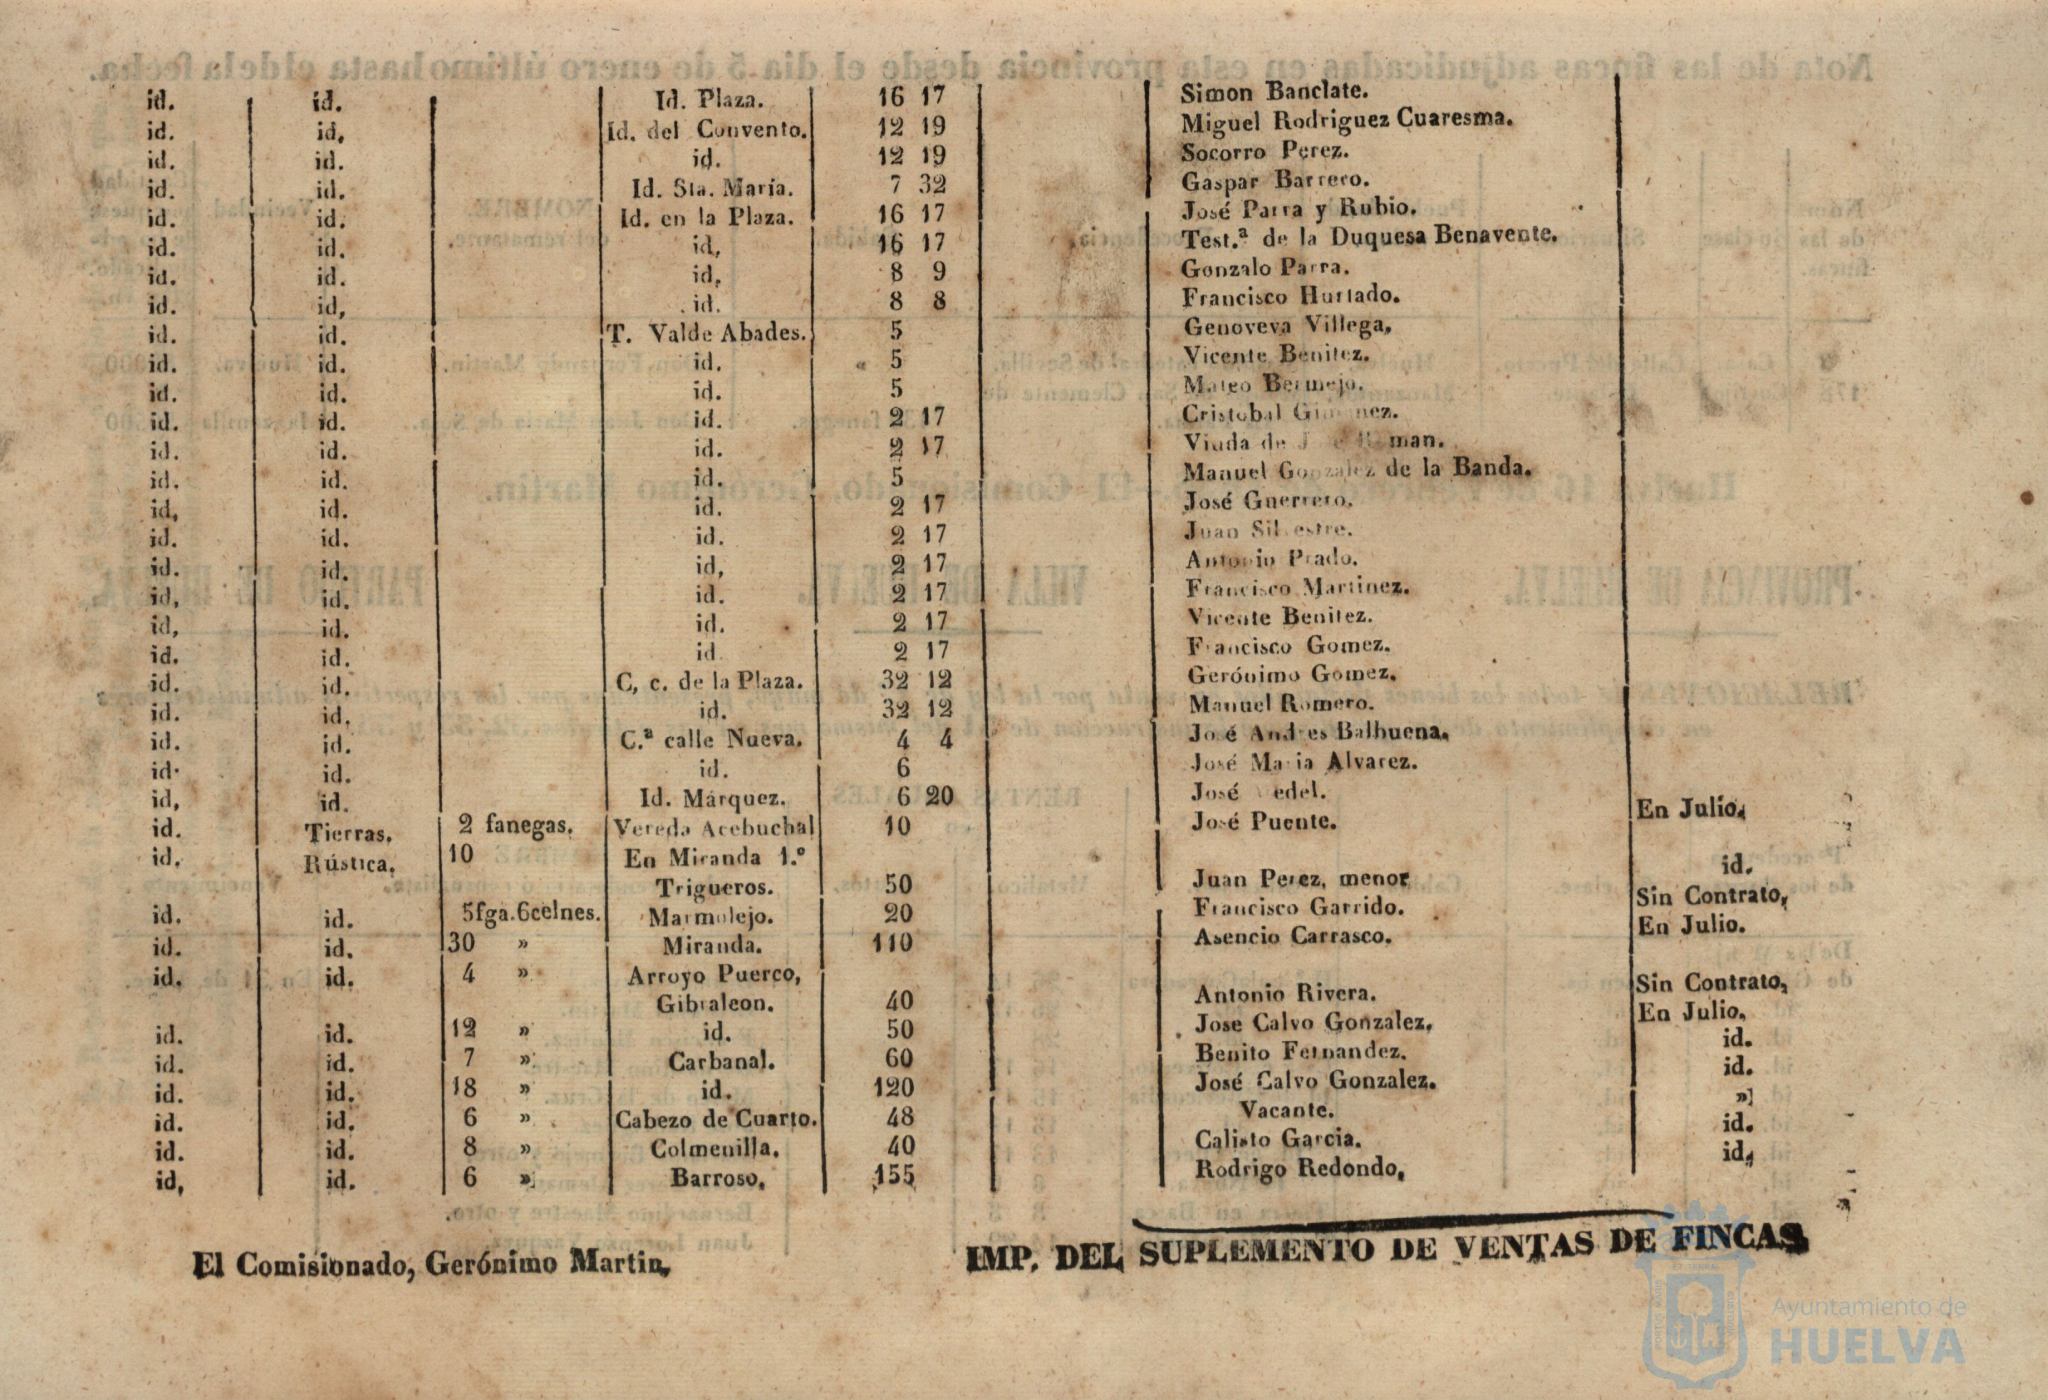 id. id. Id. Plaza. 16 17 Simon Banclate.
id. id, Id. del Convento. 12 19 Miguel Rodriguez Cuaresma.
id. id. id. 12 19 Socorro Perez.
id. id. Id. Sta. María. 7 32 Gaspar Barrero.
id. id. Id. en la Plaza. 16 17 José Parra y Rubio.
id. id. id, 16 17 Test.ª de la Duquesa Benavente.
id. id. id, 8 9 Gonzalo Parra.
id. id, id. 8 8 Francisco Hurtado.
id. id. T. Valde Abades. 5 Genoveva Villega,
id. id. id. 5 Vicente Benitez.
id. id. id. 5 Mateo Bermejo.
id. id. id. 2 17 Cristobal
id. id. id. 2 17 Viuda de
id. id. id. 5 Manuel Gonzalez de la Banda.
id, id. id. 2 17 José Guerrero.
id. id. id. 2 17 Juan Silvestre.
id. id. id, 2 17 Antonio Prado.
id, id. id. 2 17 Francisco Martinez.
id, id. id. 2 17 Vicente Benitez.
id. id. id 2 17 Francisco Gomez.
id. id. C, c. de la Plaza. 32 12 Gerónimo Gomez.
id. id. id. 32 12 Manuel Romero.
id. id. C.ª calle Nueva. 4 4 José Andres Balbuena.
id. id. id. 6 José Maria Alvarez.
id, id. Id. Márquez. 6 20 José
id. Tierras. 2 fanegas. Vereda Acebuchal 10 José Puente. En Julio.
id. Rústica. 10 En Miranda 1.º
Trigueros. 50 Juan Perez, menor id.
id. id. 5fga.6celnes. Marmolejo. 20 Francisco Garrido. Sin Contrato,
id. id. 30 » Miranda. 110 Asencio Carrasco. En Julio.
id. id. 4 » Arroyo Puerco,
Gibraleon. 40 Antonio Rivera. Sin Contrato,
id. id. 12 » id. 50 Jose Calvo Gonzalez, En Julio,
id. id. 7 » Carbanal. 60 Benito Fernandez. id.
id. id. 18 » id. 120 José Calvo Gonzalez. id.
id. id. 6 » Cabezo de Cuarto. 48 Vacante. »
id. id. 8 » Colmenilla. 40 Calisto Garcia. id.
id, id. 6 » Barroso, 155 Rodrigo Redondo, id,
El Comisionado, Gerónimo Martin,
IMP. DEL SUPLEMENTO DE VENTAS DE FINCAS
Ayuntamiento de
HUELVA